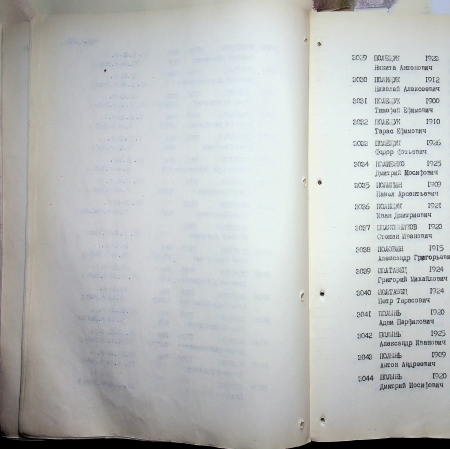 2029 ПОЛЕЩУК 1922
Никита Антонович
2030 ПОЛЕЩУК 1912
Николай Алексеевич
2031 ПОЛЕЩУК 1900
Тимофей Ефимович
2032 ПОЛЕЩУК 1910
Тарас Ефимович
2033 ПОЛЕЩУК 1926
Федор Фотьевич
2034 1925
Дмитрий Иосифович
2035 1909
Павел Арсентьевич
2036 ПОЛИЩУК 1921
Иван Дмитриевич
2037 1920
Степан Иванович
2038 ПОЛОВИН 1915
Александр Григорьеви
2039 ПОЛТАВЕЦ 1924
Григорий Михайлович
2040 ПОЛТАВЕЦ 1924
Петр Тарасович
2041 ПОЛЫНЬ 1920
Адам Парфилович
2042 ПОЛЫНЬ 1925
Александр Иванович
2043 ПОЛЫНЬ 1909
Антон Андреевич
2044 ПОЛЫНЬ 1920
Дмитрий Иосифович